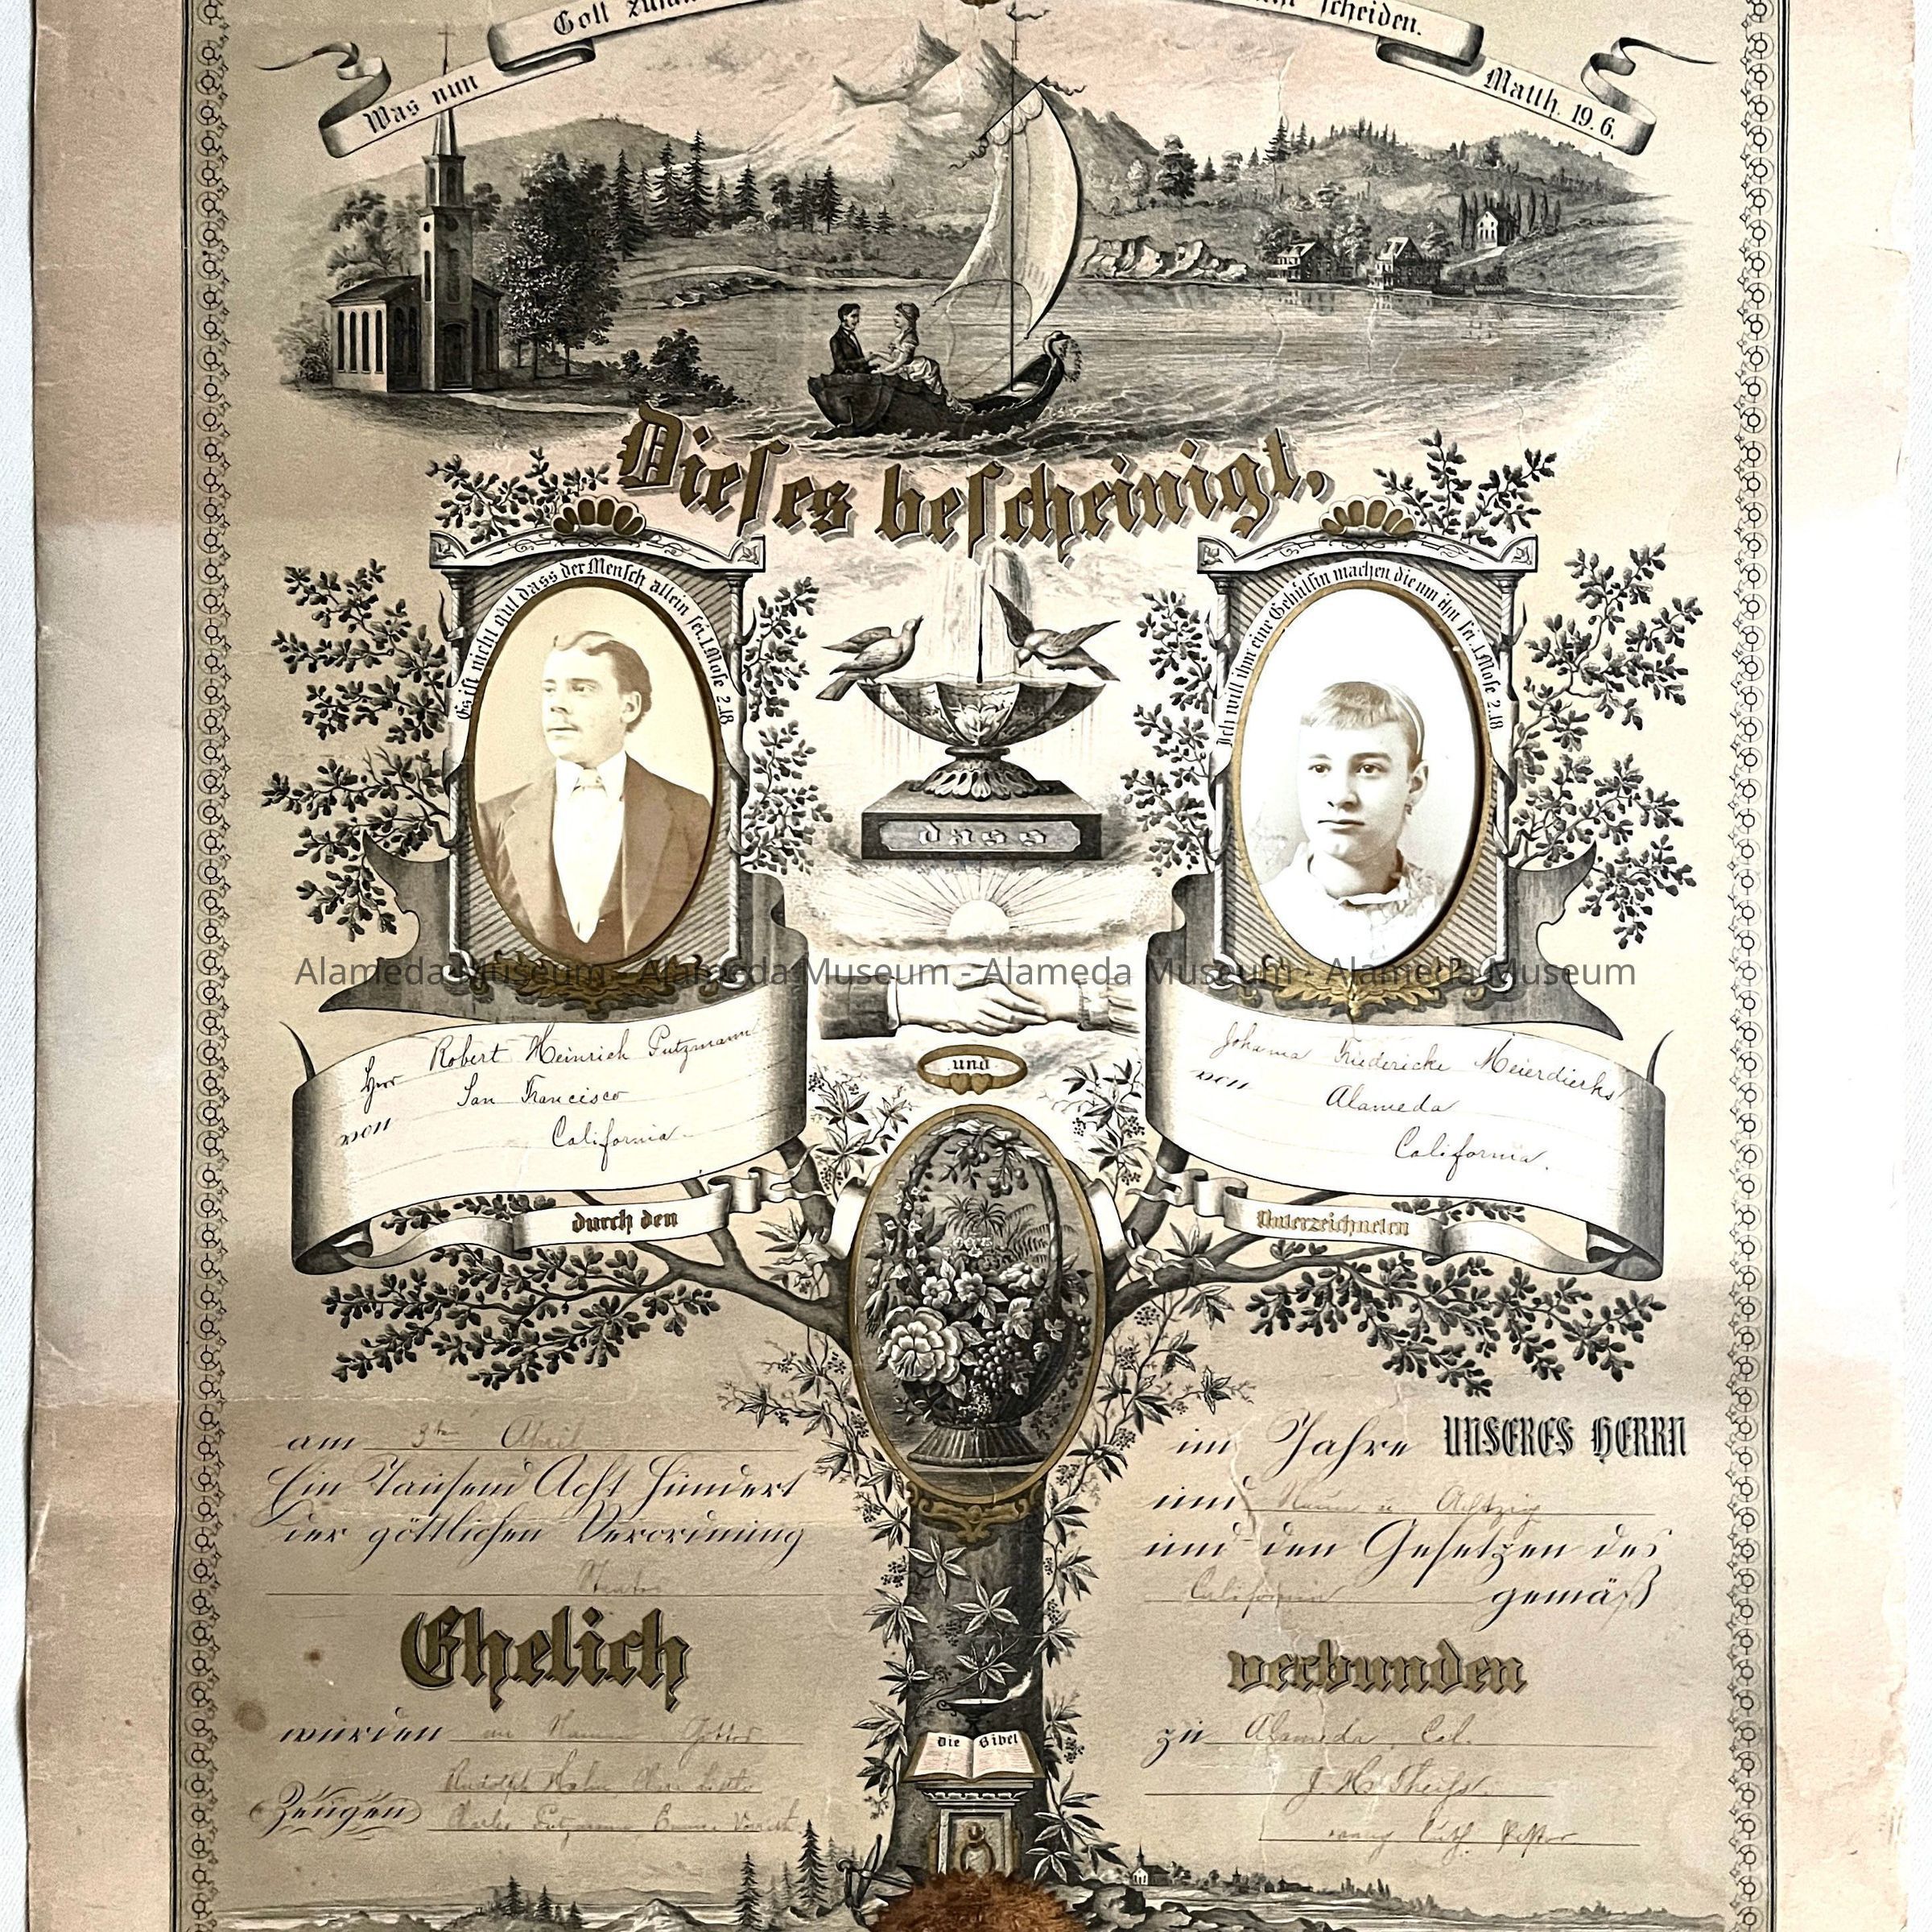 Was nun Gott scheiden. Matth. 19. 6.
Dieses bescheinigt,
Es ist nicht gut dass der Mensch allein sei. 1. Mose 2.18
Ich will ihm eine Gehülfin machen die um ihn sei. 1. Mose 2.18
dass
Alameda Museum - Alameda Museum - Alameda Museum - Alameda Museum
Herr Robert Heinrich Putzmann
von San Francisco
California
und
Johanna Friedericke Meierdierks
von Alameda
California.
durch den Unterzeichneten
am 3ten April im Jahre UNSERES HERRN
Ein Tausend Acht Hundert und Neun u. Achtzig
der göttlichen Verordnung und den Gesetzen des
Staates California gemäß
Ehelich verbunden
wurden im Namen Gottes zu Alameda, Cal.
die Bibel
Zeugen Rudolph Hahn J. H. Theiss.
Charles Putzmann Emma evang. luth. Pastor